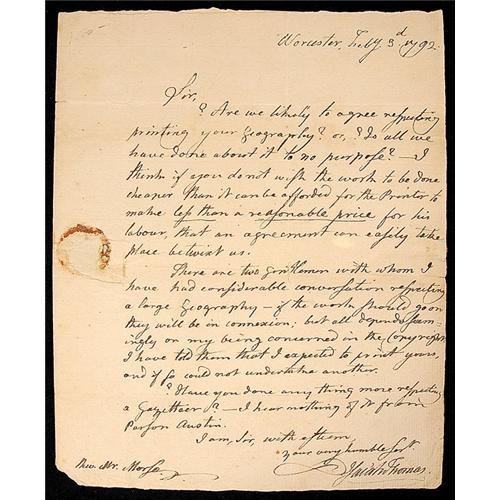 Worcester, Feby. 3d. 1792.
Sir,
? Are we likely to agree respecting
printing your Geography? or, ? Is all we
have done about it to no purpose? — I
think if you do not wish the work to be done
cheaper than it can be afforded for the Printer to
make less than a reasonable price for his
labour, that an agreement can easily take
place betwixt us.
There are two Gentlemen with whom I
have had considerable conversation respecting
a large Geography — if the work should go on
they will be in connexion, but all depends seem-
ingly on my being concerned in the Copyright
I have told them that I expected to print yours,
and if so could not undertake another.
? Have you done any thing more respecting
a Gazetteer? — I hear nothing of it from
Parson Austin.
I am, Sir, with esteem
your very humble Servt.
Isaiah Thomas.
Revd. Mr. Morse